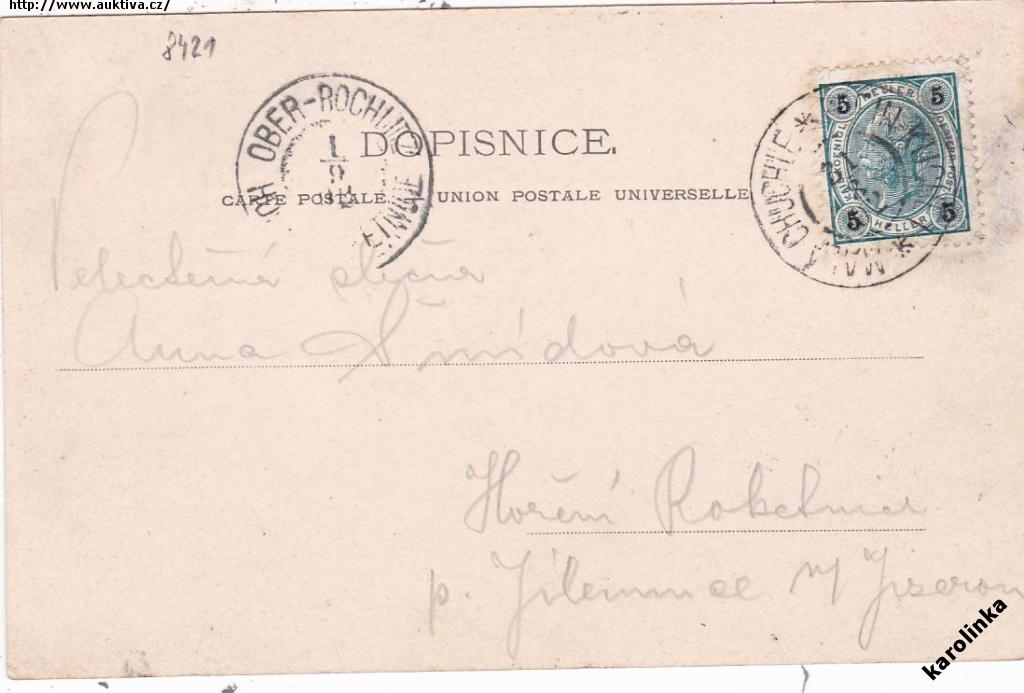 http://www.auktiva.cz/
8421
OBER-ROCHLITZ
DOPISNICE.
CARTE POSTALE. UNION POSTALE UNIVERSELLE
MALÁ CHUCHLE
5 HELLER 5
5 HELLER 5
Velectěná slečna
Anna Šmídová
Hoření Roketnice
p. Jilemnice n/ Jizerou
karolinka